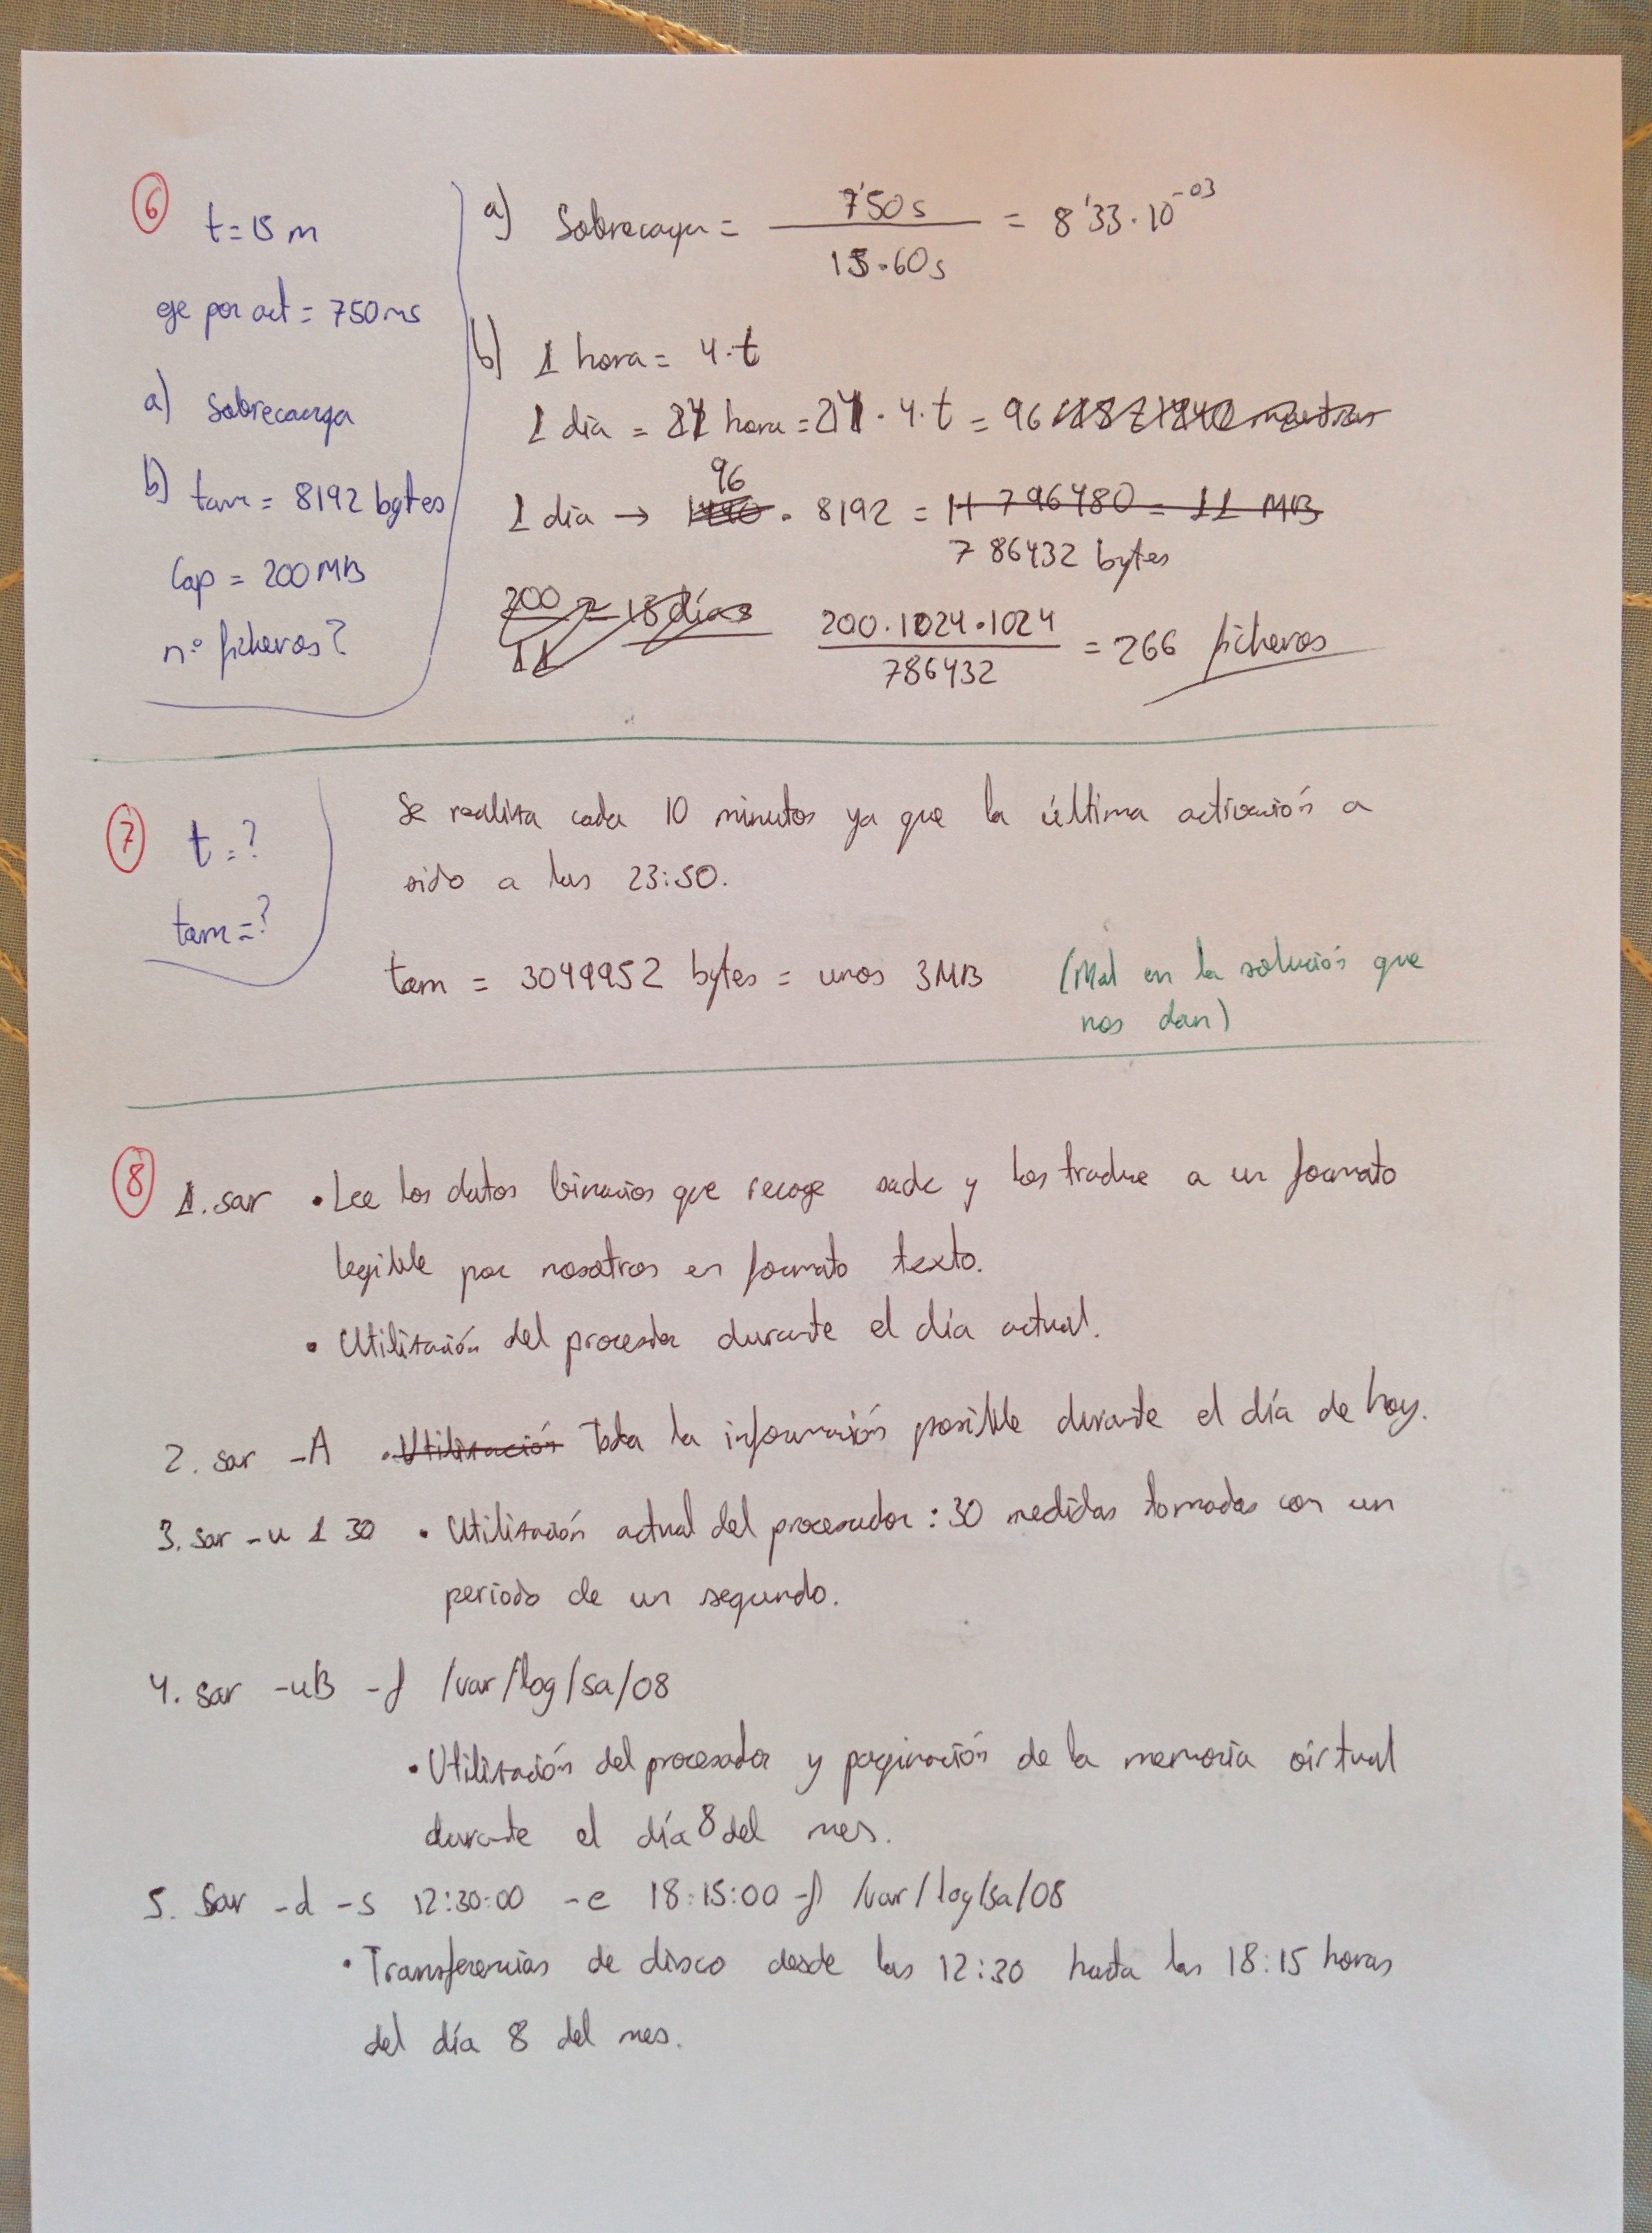 6
t = 15 m
eje por act = 750 ms
a) Sobrecarga
b) tam = 8192 bytes
Cap = 200 MB
nº ficheros?
a) Sobrecarga = 7'50 s / 15·60 s = 8'33·10^-03
b) 1 hora = 4·t
1 día = 24 hora = 24·4·t = 96
1 día → 1440 96 · 8192 = 11 796480 = 11 MB
786432 bytes
200 / 11 = 18 días
200·1024·1024 / 786432 = 266 ficheros
7
t = ?
tam = ?
Se realiza cada 10 minutos ya que la última activación a
sido a las 23:50.
tam = 3049952 bytes = unos 3MB (Mal en la solución que
nos dan)
8
1. sar • Lee los datos binarios que recoge sadc y los traduce a un formato
legible por nosotros en formato texto.
• Utilización del procesador durante el día actual.
2. sar -A • Utilización Toda la información posible durante el día de hoy.
3. sar -u 1 30 • Utilización actual del procesador: 30 medidas tomadas con un
periodo de un segundo.
4. sar -uB -f /var/log/sa/08
• Utilización del procesador y paginación de la memoria virtual
durante el día 8 del mes.
5. Sar -d -s 12:30:00 -e 18:15:00 -f /var/log/sa/08
• Transferencias de disco desde las 12:30 hasta las 18:15 horas
del día 8 del mes.